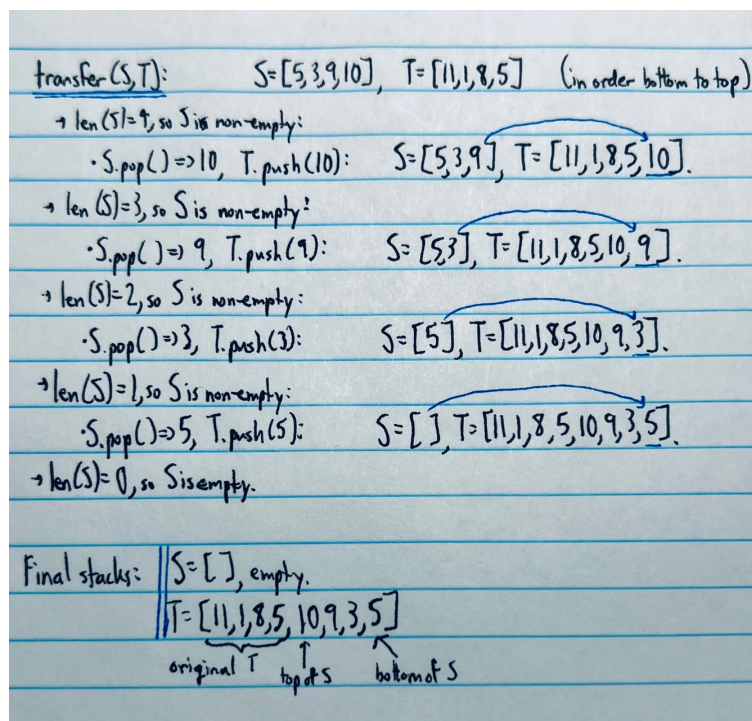 transfer(S,T): S=[5,3,9,10], T=[11,1,8,5] (in order bottom to top)
→ len(S)=4, so S is non-empty:
• S.pop()=>10, T.push(10): S=[5,3,9], T=[11,1,8,5,10].
→ len(S)=3, so S is non-empty:
• S.pop()=> 9, T.push(9): S=[5,3], T=[11,1,8,5,10,9].
→ len(S)=2, so S is non-empty:
• S.pop()=>3, T.push(3): S=[5], T=[11,1,8,5,10,9,3].
→ len(S)=1, so S is non-empty:
• S.pop()=>5, T.push(5): S=[ ], T=[11,1,8,5,10,9,3,5].
→ len(S)=0, so S is empty.
Final stacks: S=[ ], empty.
T=[11,1,8,5,10,9,3,5]
original T top of S bottom of S